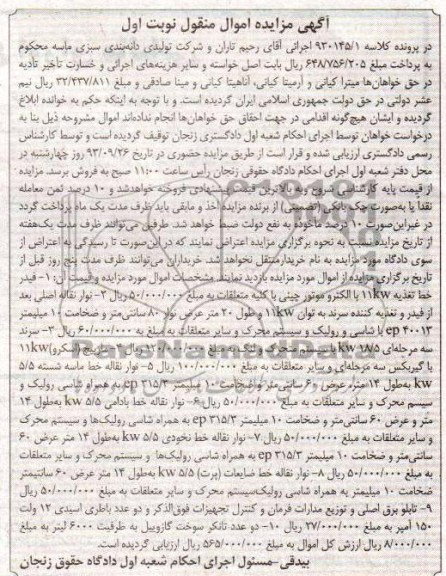 آگهی مزایده اموال منقول نوبت اول
در پرونده کلاسه ۹۳۰۱۴۵/۱ اجرائی آقای رحیم تاران و شرکت تولیدی دانه‌بندی سبزی ماسه محکوم
به پرداخت مبلغ ۶۴۸/۷۵۶/۲۰۵ ریال بابت اصل خواسته و سایر هزینه‌های اجرائی و خسارت تأخیر تأدیه
در حق خواهان‌ها میترا کیانی و آرمیتا کیانی، آناهیتا کیانی و مینا صادقی و مبلغ ۳۲/۴۳۷/۸۱۱ ریال نیم
عشر دولتی در حق دولت جمهوری اسلامی ایران گردیده است. و با توجه به اینکه حکم به خوانده ابلاغ
گردیده و ایشان هیچ‌گونه اقدامی در جهت احقاق حق خواهان‌ها انجام نداده‌اند اموال مشروحه ذیل بنا به
درخواست خواهان توسط اجرای احکام شعبه اول دادگستری زنجان توقیف گردیده است و توسط کارشناس
رسمی دادگستری ارزیابی شده و قرار است از طریق مزایده حضوری در تاریخ ۹۳/۰۹/۲۶ روز چهارشنبه در
محل دفتر شعبه اول اجرای احکام دادگاه حقوقی زنجان راس ساعت ۱۱:۰۰ صبح به فروش برسد. مزایده
از قیمت پایه کارشناسی شروع و به بالاترین قیمت پیشنهادی فروخته خواهد شد و ۱۰ درصد ثمن معامله
نقدا یا به‌صورت چک بانکی (تضمینی) از برنده مزایده اخذ و مابقی باید ظرف مدت یک ماه پرداخت گردد
در غیراین‌صورت ۱۰ درصد ماخوذه به نفع دولت ضبط خواهد شد. طرفین می‌توانند ظرف مدت یک‌هفته
از تاریخ مزایده نسبت به نحوه برگزاری مزایده اعتراض نمایند که در این‌صورت تا رسیدگی به اعتراض از
سوی دادگاه مورد مزایده به نام خریدار منتقل نخواهد شد. خریداران می‌توانند ظرف مدت پنج روز قبل از
تاریخ برگزاری مزایده از اموال مورد مزایده بازدید نمایند. مشخصات اموال مورد مزایده و قیمت آن: ۱- فیدر
خط تغذیه ۱۱kw با الکترو موتور چینی با کلیه متعلقات به مبلغ ۵۰/۰۰۰/۰۰۰ ریال ۲- نوار نقاله اصلی بعد
از فیدر و تغذیه کننده سرند به توان ۱۱kw و طول ۲۰ متر عرض نوار ۸۰ سانتی‌متر و ضخامت ۱۰ میلیمتر
ep ۴۰۰۱۳ با شاسی و رولیک و سیستم محرک و سایر متعلقات به مبلغ ۶۰/۰۰۰/۰۰۰ ریال ۳- سرند
سه مرحله‌ای ۱۸/۵ kw با سیستم متحرک و به مبلغ ۱۲۰/۰۰۰/۰۰۰ ریال ۴- مارپیچ (اسکرو) ۱۱kw
با گیربکس سه مرحله‌ای و سایر متعلقات به مبلغ ۱۰۰/۰۰۰/۰۰۰ ریال ۵- نوار نقاله خط ماسه شسته ۵/۵
kw به‌طول ۱۴ متر، عرض ۶۰ سانتی‌متر و ضخامت ۱۰ میلیمتر ep ۳۱۵/۳ به همراه شاسی رولیک و
سیسم محرک و سایر متعلقات به مبلغ ۵۰/۰۰۰/۰۰۰ ریال ۶- نوار نقاله خط بادامی ۵/۵ kw به‌طول ۱۴
متر و عرض ۶۰ سانتی‌متر و ضخامت ۱۰ میلیمتر ep ۳۱۵/۳ به همراه شاسی رولیک‌ها و سیستم محرک
و سایر متعلقات به مبلغ ۵۰/۰۰۰/۰۰۰ ریال ۷- نوار نقاله خط نخودی ۵/۵ kw به‌طول ۱۴ متر عرض ۶۰
سانتی‌متر و ضخامت ۱۰ میلیمتر ep ۳۱۵/۳ به همراه شاسی رولیک‌ها و سیستم محرک و سایر متعلقات
به مبلغ ۵۰/۰۰۰/۰۰۰ ریال ۸- نوار نقاله خط ضایعات (پرت) ۵/۵ kw به‌طول ۱۴ متر عرض ۶۰ سانتیمتر
ضخامت ۱۰ میلیمتر به همراه شاسی رولیک سیستم محرک و سایر متعلقات به مبلغ ۵۰/۰۰۰/۰۰۰ ریال
۹- تابلو برق اصلی و توزیع مدارات فرمان و کنترل تجهیزات فوق‌الذکر و دو عدد باطری اسیدی ۱۲ ولت
۱۵۰ آمپر به مبلغ ۲۷/۰۰۰/۰۰۰ ریال ۱۰- دو عدد تانکر سوخت گازوییل به ظرفیت ۶۰۰۰ لیتر به مبلغ
۸/۰۰۰/۰۰۰ ریال ارزش کل اموال به مبلغ ۵۶۵/۰۰۰/۰۰۰ ریال ارزیابی گردیده است.
بیدقی-مسئول اجرای احکام شعبه اول دادگاه حقوق زنجان